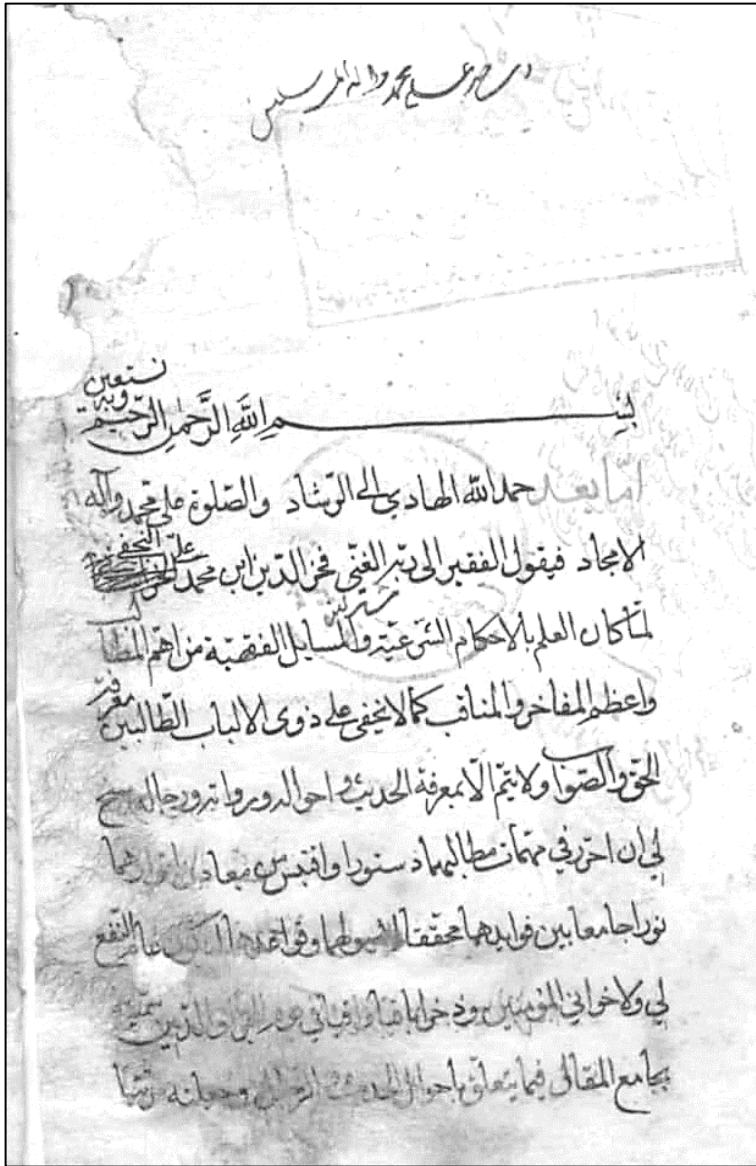 على محمد واله
وبه نستعين
بسم الله الرَّحمٰن الرّحيم
امّا بعد حمد الله الهادي الى الرّشاد والصّلوة على محمد وآله
الامجاد فيقول الفقير الى ربّه الغنّي فخر الدّين ابن محمد علىّ النجفي
لمّا كان العلم بالاحكام الشّرعيّة والمسايل الفقهيّة من اهمّ المطالب
واعظم المفاخر والمناقب كما لا يخفى على ذوى الالباب الطّالبين معرفة
الحقّ والصّواب ولا يتمّ الّا بمعرفة الحديث واحوال ورجاله سنح
لي ان احرّر في مهمّات مطالبهما دستورا واقتبس من معادن انوارهما
نورا جامعا بين فوايدهما محققا لاصولهما وقواعدهما ليكون النّفع
لي ولاخواني المؤمنين وذخرا باقيا والدّين
بجامع المقال فيما يتعلّق باحوال الحديث والرّجال وجعلته مرتّبا